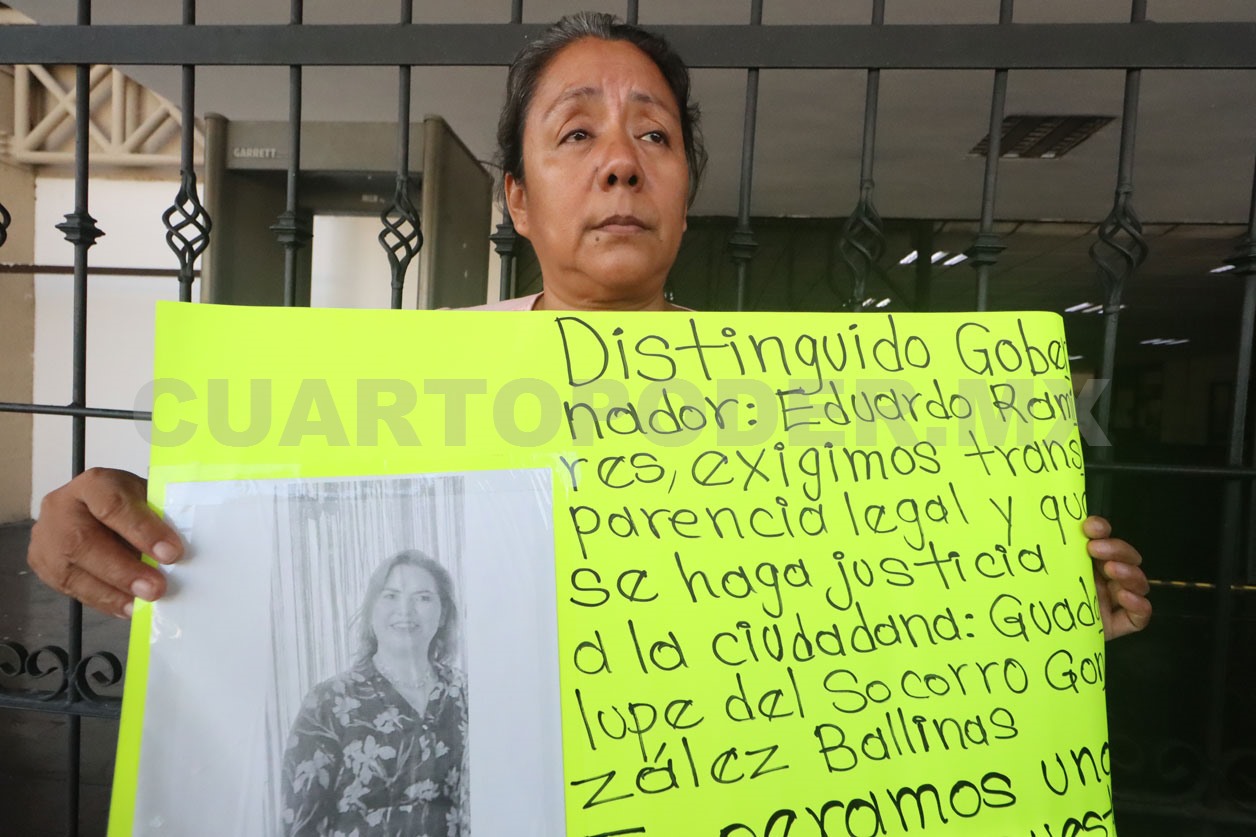 GARRETT
CUARTOPODER.MX
Distinguido Gober
nador: Eduardo Ramí
res, exigimos trans
parencia legal y que
se haga justicia
a la ciudadana: Guada
lupe del Socorro Gon
zález Ballinas
Esperamos una